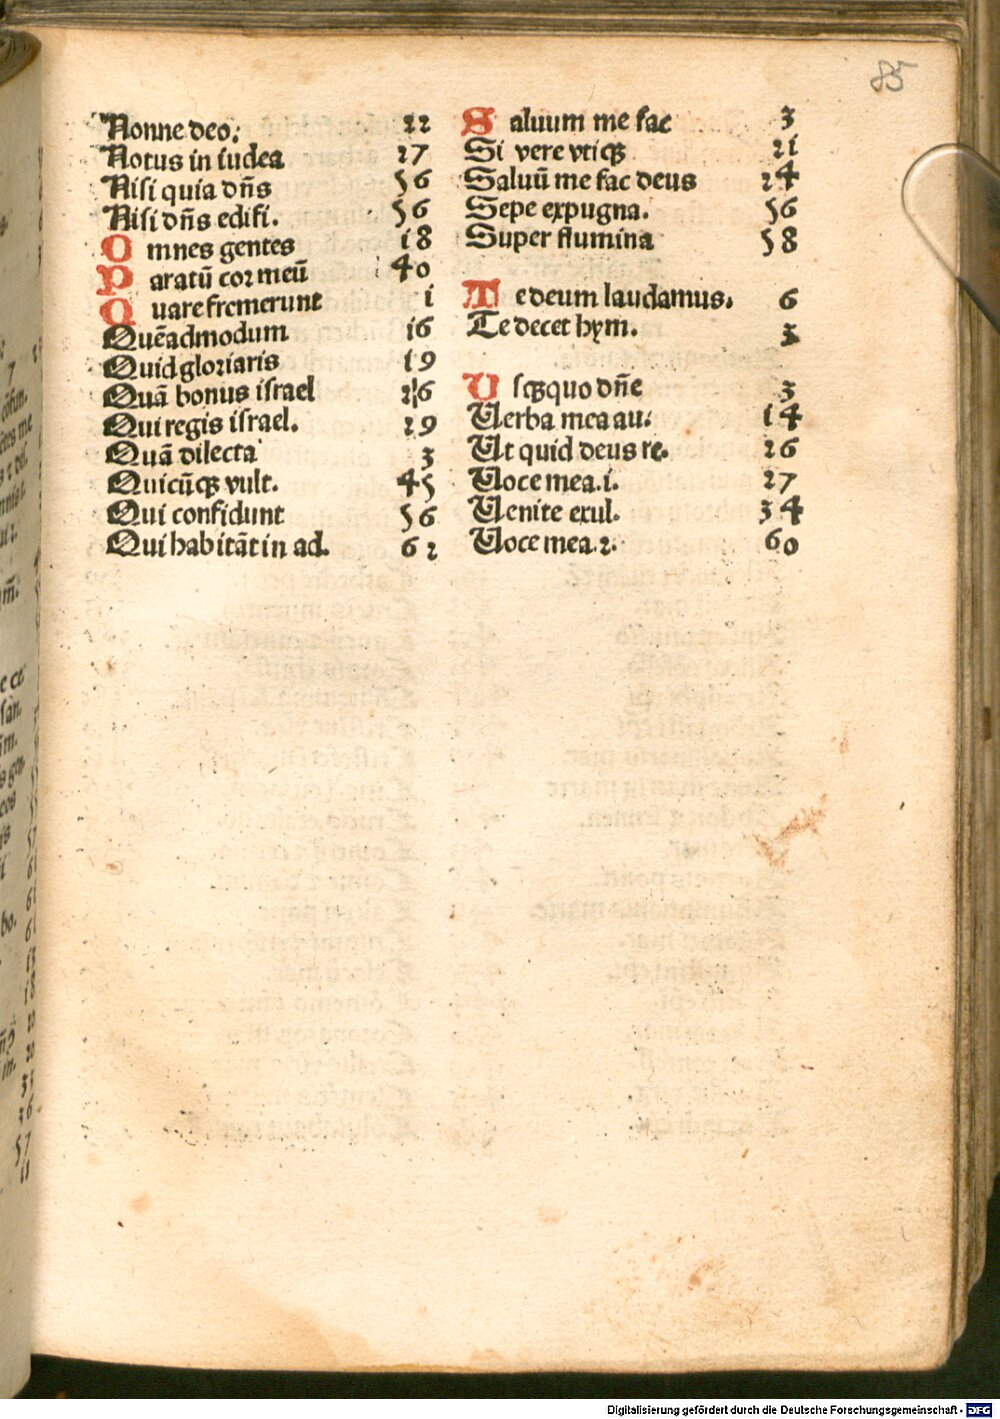 85
Nonne deo.      22
Notus in iudea      27
Nisi quia dn̄s      56
Nisi dn̄s edifi.      56
Omnes gentes      18
Paratū cor meū      40
Quare fremerunt      1
Quēadmodum      16
Quid gloriaris      19
Quā bonus israel      26
Qui regis israel.      29
Quā dilecta      3
Quicūqꝫ vult.      45
Qui confidunt      56
Qui habitāt in ad.      62
Saluum me fac      3
Si vere vtiqꝫ      21
Saluū me fac deus      24
Sepe expugna.      56
Super flumina      58
Te deum laudamus.      6
Te decet hym.      3
Usqꝫquo dn̄e      3
Verba mea au.      14
Ut quid deus re.      26
Voce mea.i.      27
Venite exul.      34
Voce mea.2.      60
Digitalisierung gefördert durch die Deutsche Forschungsgemeinschaft - DFG